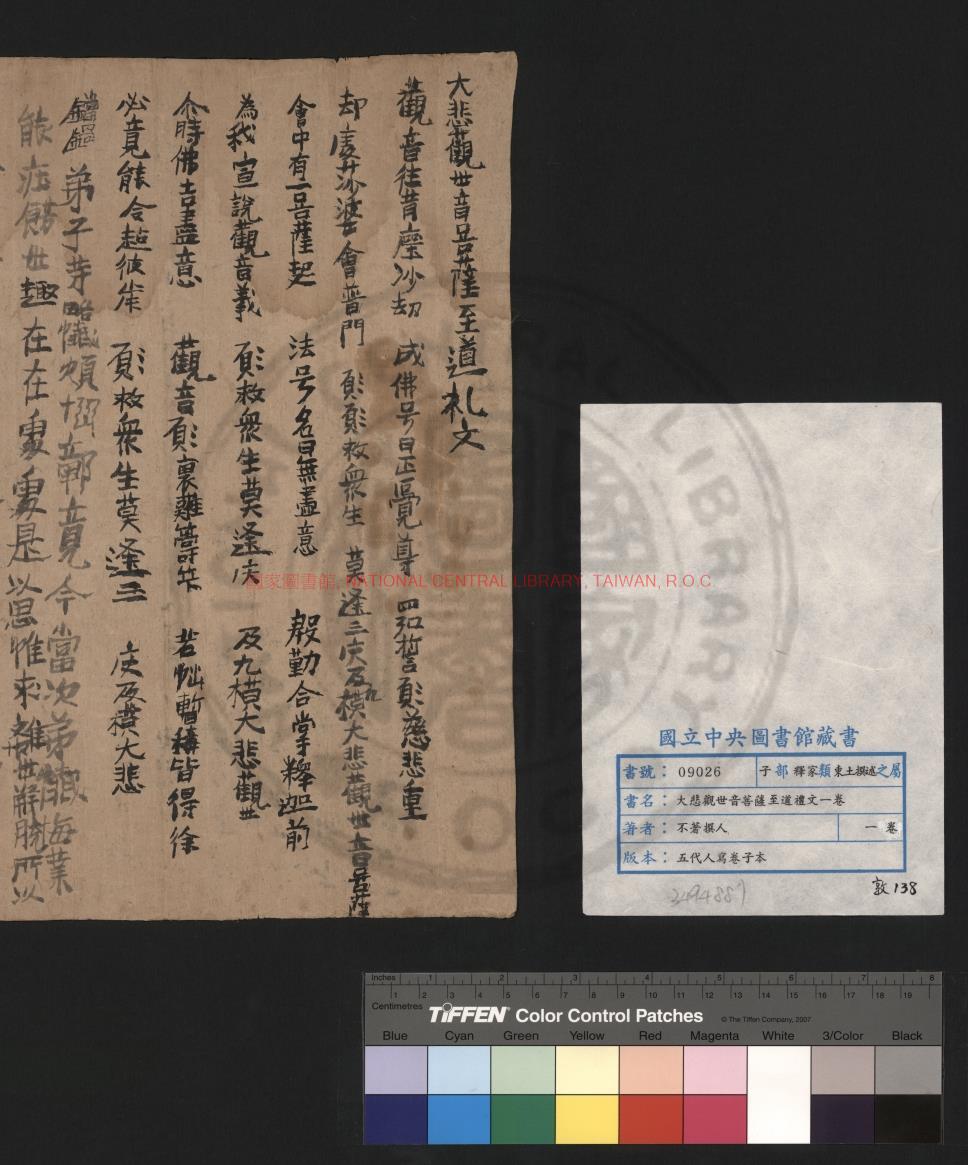 大悲觀世音菩薩至道礼文
觀音往昔塵沙劫 成佛号曰正覺尊 四弘誓願慈悲重
却度娑婆會普門 願願救眾生 莫逢三灾及九橫大悲觀世音菩薩
會中有一菩薩起 法号名曰無盡意 殷勤合掌釋迦前
為我宣說觀音義 願救眾生莫逢灾 及九橫大悲觀世
尒時佛告盡意 觀音願裏難等 若 暫稱皆得徐
必竟能令超彼岸 願救眾生莫逢三 灾及橫大悲
弟子 懺煩惱鄣竟今當次弟懺悔業
能 世趣在在處處是以思惟求離世解脫所以
國家圖書館, NATIONAL CENTRAL LIBRARY, TAIWAN, R.O.C.
LIBRARY
國立中央圖書館藏書
書號： 09026 子部釋家類東土撰述之屬
書名： 大悲觀世音菩薩至道禮文一卷
著者： 不著撰人 一卷
版本： 五代人寫卷子本
3494887
敦138
Inches 1 2 3 4 5 6 7 8
1 2 3 4 5 6 7 8 9 10 11 12 13 14 15 16 17 18 19
Centimetres
TIFFEN® Color Control Patches © The Tiffen Company, 2007
Blue Cyan Green Yellow Red Magenta White 3/Color Black